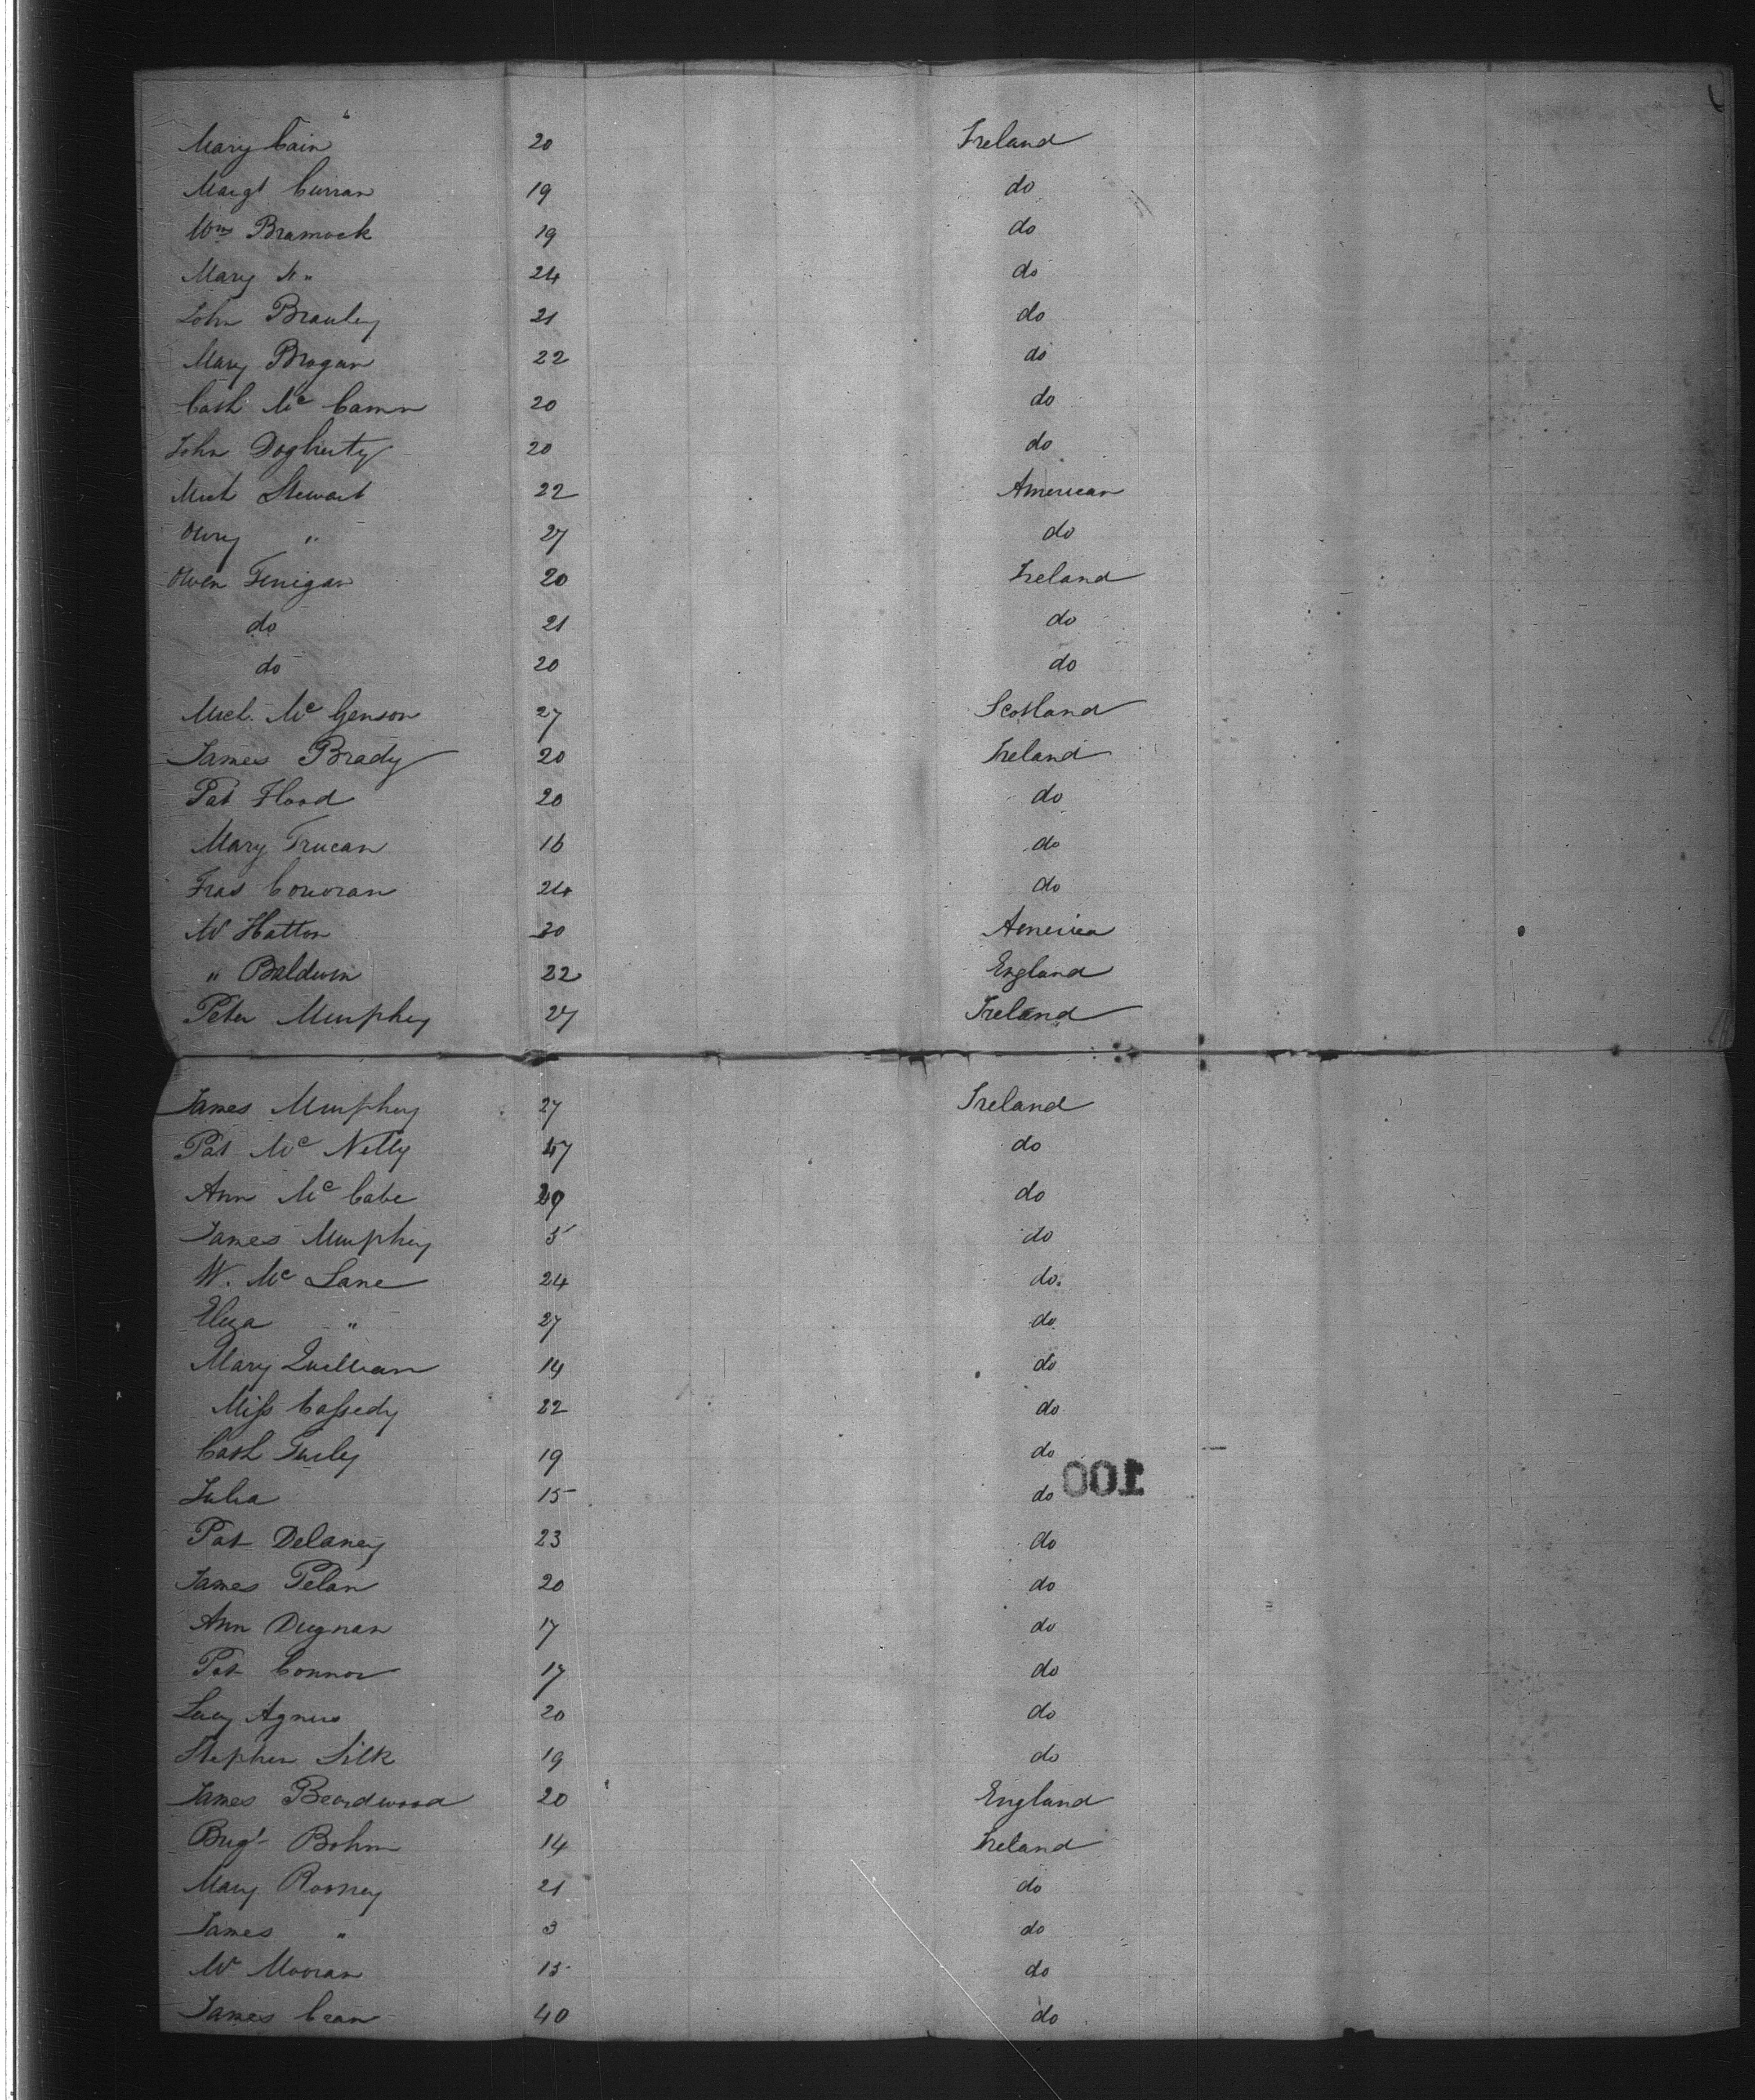 Mary Cain 20 Ireland
Margt Curran 19 do
Wm Bramock 19 do
Mary " 24 do
John Brauley 21 do
Mary Brogan 22 do
Cath Mc Camn 20 do
John Dogherty 20 do
Mich Stewart 22 American
" 27 do
Owen Finigan 20 Ireland
do 21 do
do 20 do
Micl. Mc Genson 27 Scotland
James Brady 20 Ireland
Pat Flood 20 do
Mary Trucan 16 do
Fras Corcoran 24 do
Mr Hatton 30 America
" Baldwin 22 England
Peter Murphey 27 Ireland
James Murphey 27 Ireland
Pat Mc Nelly 47 do
Ann Mc Cabe do
James Murphey 5 do
W. Mc Lane 24 do.
Eliza " 27 do
Mary Quillvan 14 do
Miss Cassedy 22 do
Cath Turley 19 do
Julia 15 do
100
Pat Delaney 23 do
James Pelan 20 do
Ann Dugnan 17 do
Pat Connor 17 do
Lucy Agnus 20 do
Stephen Silk 19 do
James Beardwood 20 England
Brigt Bohm 14 Ireland
Mary Rooney 21 do
James " 3 do
Mr Mooran 15 do
James Cran 40 do